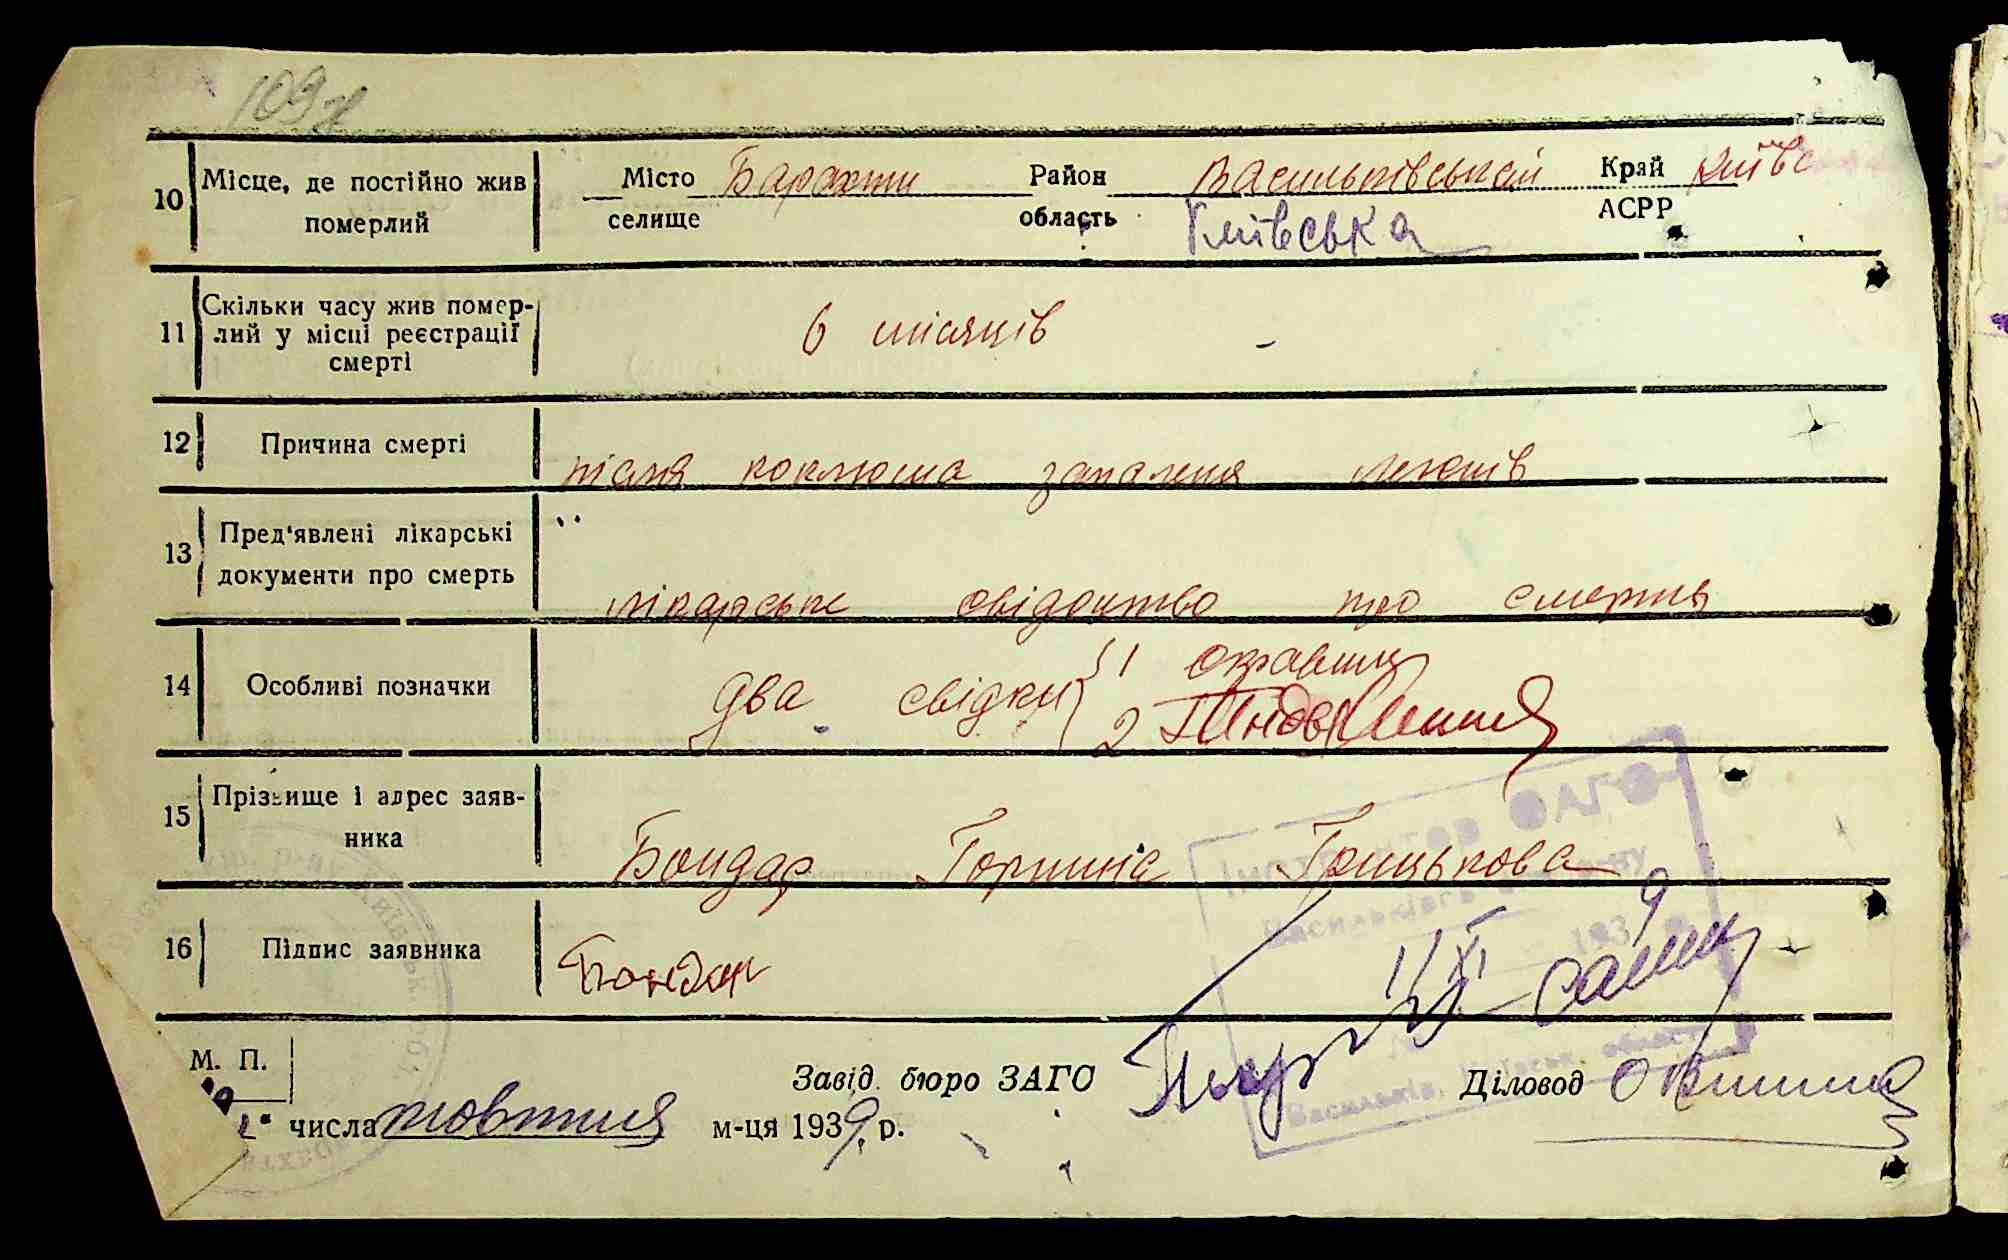 109
10 Місце, де постійно жив померлий
Місто селище Барахти Район область Васильківський Край АСРР Київс
Київська
11 Скільки часу жив помер-
лий у місці реєстрації
смерті
6 місяців
12 Причина смерті
після коклюша запалення легенів
13 Пред'явлені лікарські
документи про смерть
лікарське свідоцтво про смерть
14 Особливі позначки
два свідки 1
2
15 Прізвище і адрес заяв-
ника
Бондар Горпина Грицькова
16 Підпис заявника
Бондар
Інструктор ЗАГС
Васильків, Київськ. област
11/XI 1939
М. П.
Завід. бюро ЗАГС
Діловод
числа жовтня м-ця 1939 р.